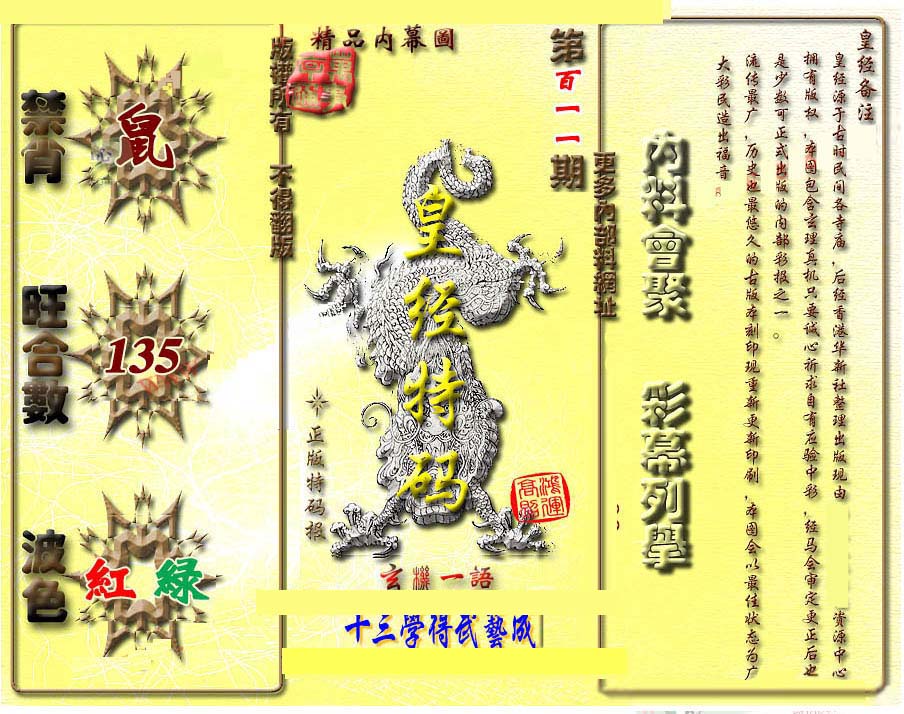 精品內幕圖
第百一一期
版權所有 不得翻版
更多內部料網址
禁肖
鼠
旺合數
135
波色
紅 綠
皇经特码
正版特码报
鴻運高照
玄機一語
十三學得武藝成
內料會聚 彩幕列舉
皇经备注
皇经源于古时民间各寺庙,后经香港华新社整理出版现由
资源中心
拥有版权,本图包含玄理真机只要诚心祈求自有应验中彩,经马会审定更正后也
是少数可正式出版的内部彩报之一。
流传最广,历史也最悠久的古版本刻印现重新更新印刷,本图会以最佳状态为广
大彩民造出福音